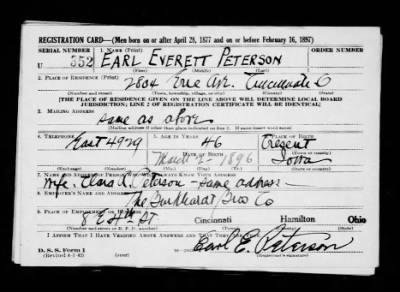 REGISTRATION CARD—(Men born on or after April 28, 1877 and on or before February 16, 1897)
SERIAL NUMBER 1. NAME (Print) ORDER NUMBER
U 352 EARL EVERETT PETERSON
(First) (Middle) (Last)
2. PLACE OF RESIDENCE (Print)
2804 Erie Ave. Cincinnati O
(Number and street) (Town, township, village, or city) (County) (State)
[THE PLACE OF RESIDENCE GIVEN ON THE LINE ABOVE WILL DETERMINE LOCAL BOARD
JURISDICTION; LINE 2 OF REGISTRATION CERTIFICATE WILL BE IDENTICAL]
3. MAILING ADDRESS
same as above
(Mailing address if other than place indicated on line 2. If same insert word same)
4. TELEPHONE 5. AGE IN YEARS 6. PLACE OF BIRTH
East 4929 46 Cresent
DATE OF BIRTH (Town or county)
March 2- 1896 Iowa
7. NAME AND ADDRESS OF PERSON WHO WILL ALWAYS KNOW YOUR ADDRESS
Wife, Peterson - same address -
8. EMPLOYER'S NAME AND ADDRESS
The Burkhardt Bros Co
9. PLACE OF EMPLOYMENT OR BUSINESS
8 E 4th St Cincinnati Hamilton Ohio
I AFFIRM THAT I HAVE VERIFIED ABOVE ANSWERS AND THAT THEY ARE TRUE.
D. S. S. Form 1
(Revised 4-1-42) Earl E. Peterson
(Registrant's signature)